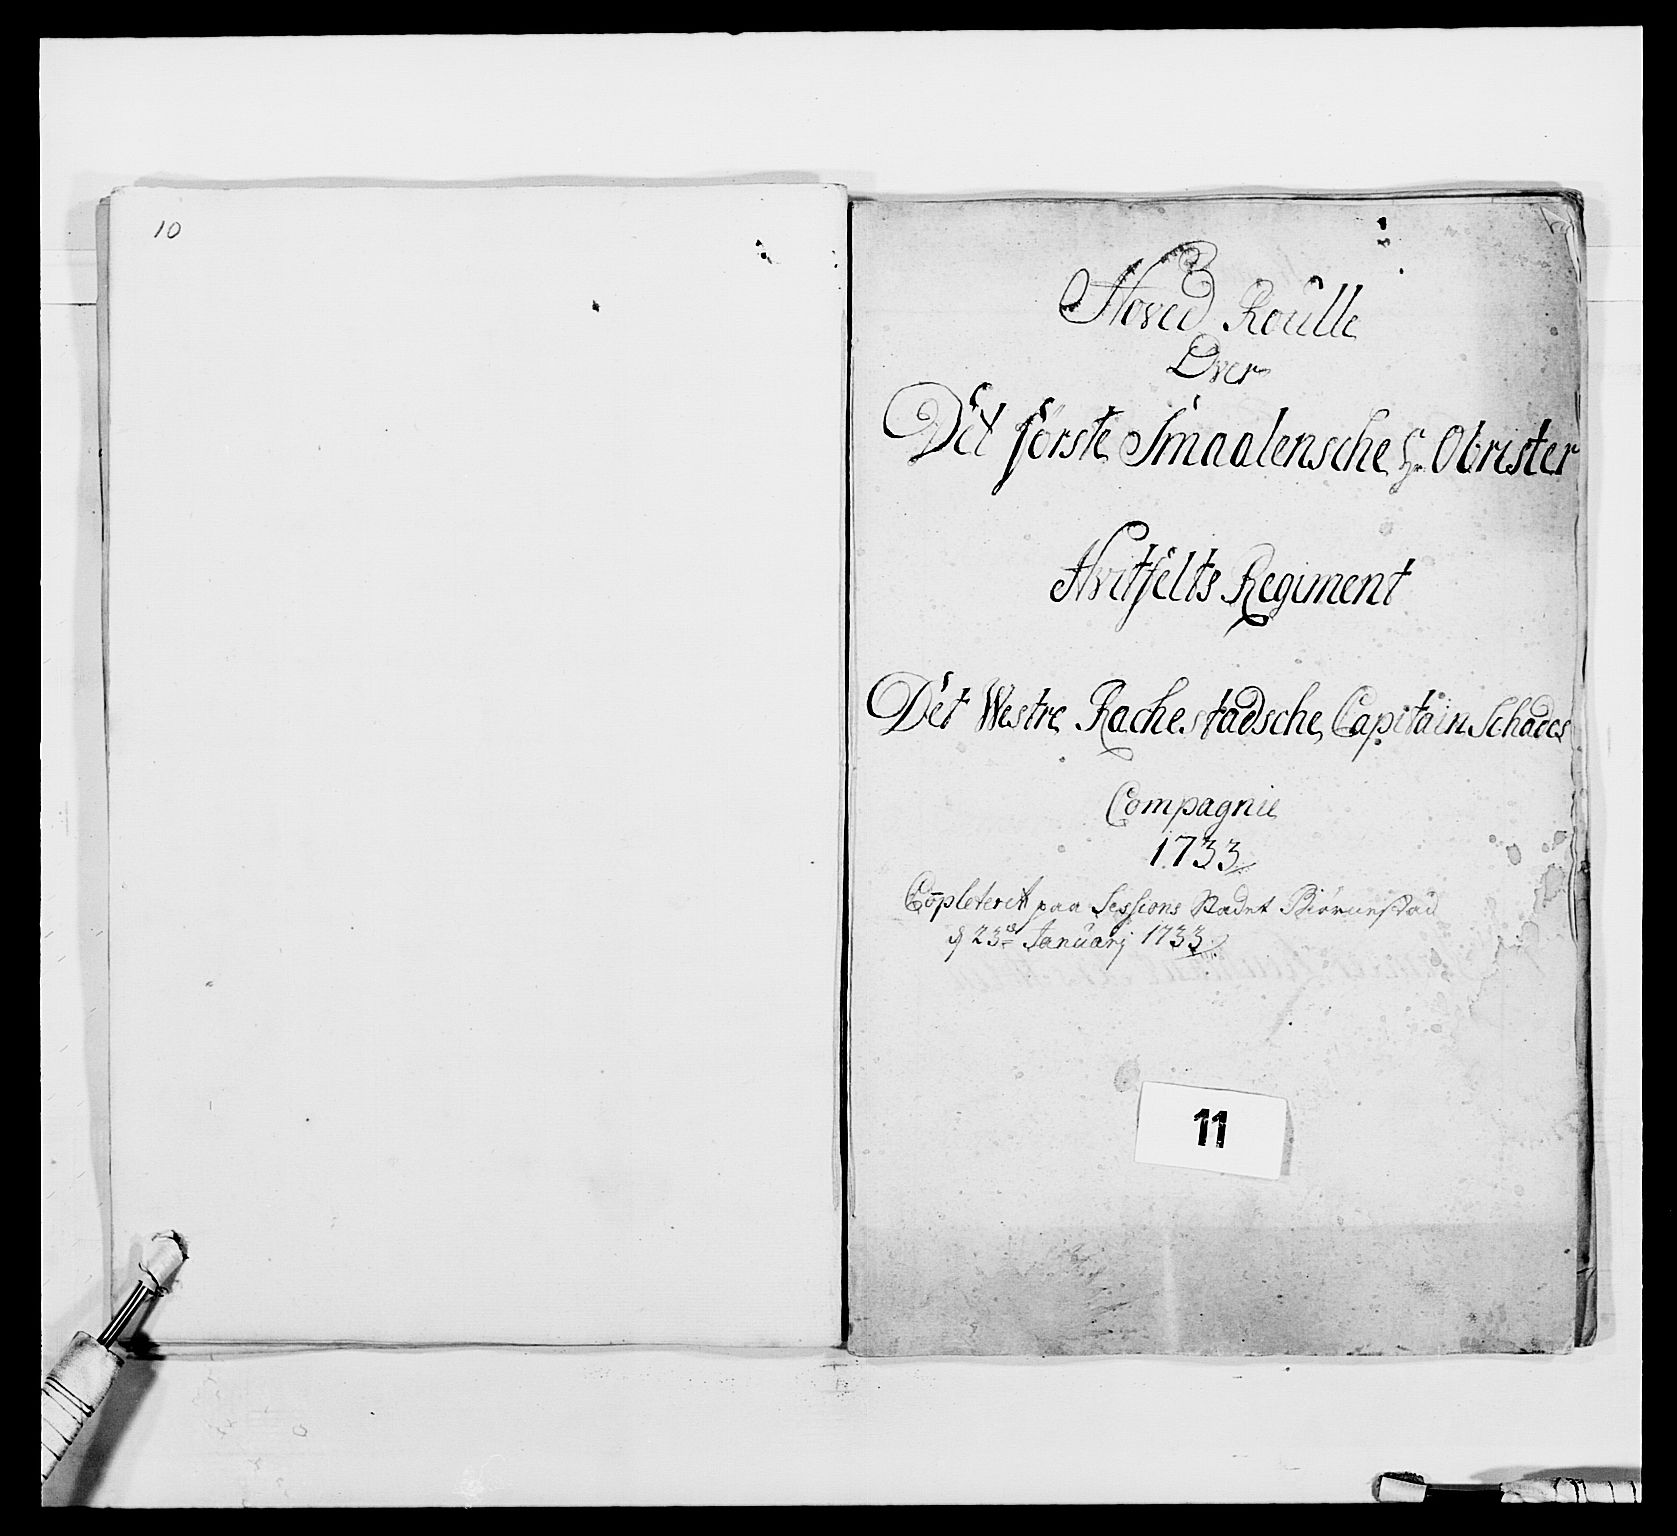 10
Hoved Roulle
Over
Det förste Smaalensche Hr Obrister
Hvitfelts Regiment
Det Westre Rachestadsche Capitain Schades
Compagnie
1733
Cōpleteret paa Sessions Stadet Biörnestad
d 23de Januarj 1733
11